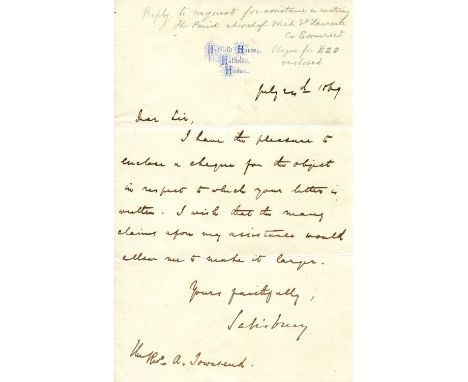 Reply to request for assistance in restoring
the Parish church of Wick St Lawrence
Co Somerset
Cheque for £20
enclosed
Hatfield House,
Hatfield,
Herts.
July 24th 1869
Dear Sir,
I have the pleasure to
enclose a cheque for the object
in respect to which your letter is
written. I wish that the many
claims upon my assistance would
allow me to make it larger.
Yours faithfully,
Salisbury
The Revd A. Townsend.